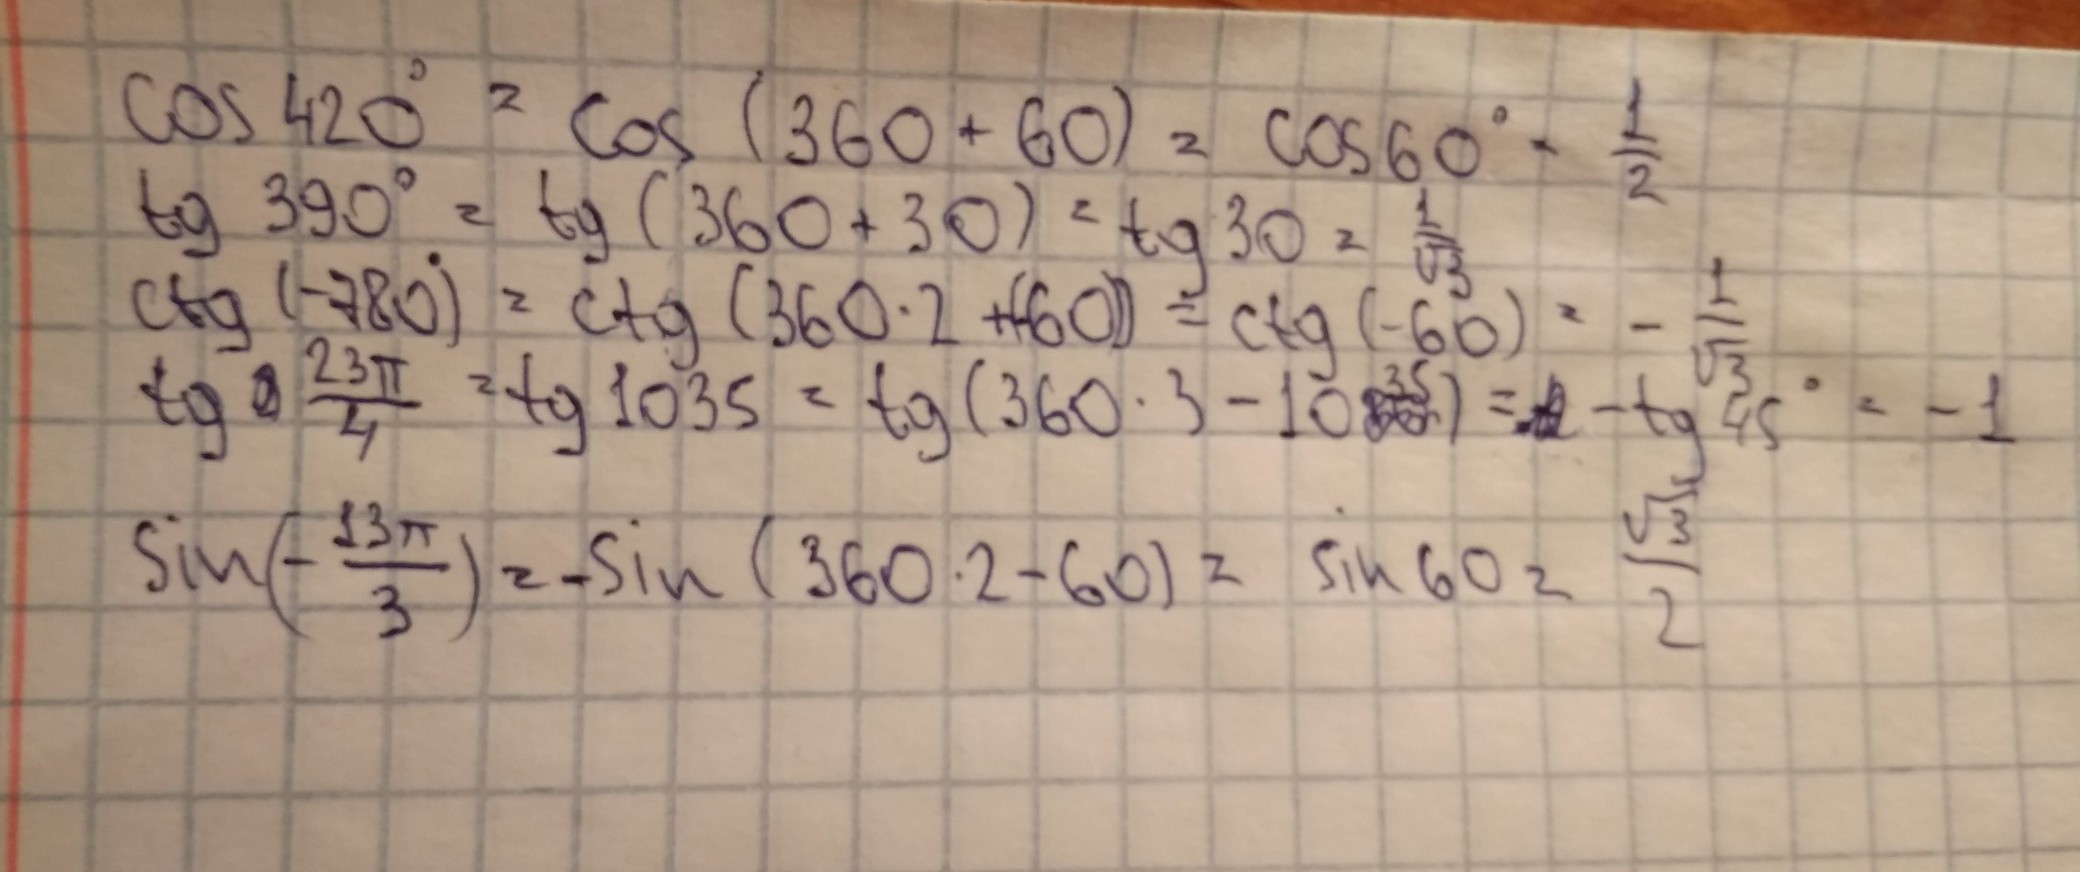 cos 420° = cos (360 + 60) = cos 60° - 1/2
tg 390° = tg (360 + 30) = tg 30 = 1/√3
ctg (-780°) = ctg (360·2 +(-60)) = ctg (-60) = - 1/√3
tg 23π/4 = tg 1035 = tg (360·3 - 1035) = -tg 45° = -1
sin(-13π/3) = -sin (360·2-60) = sin 60 = √3/2